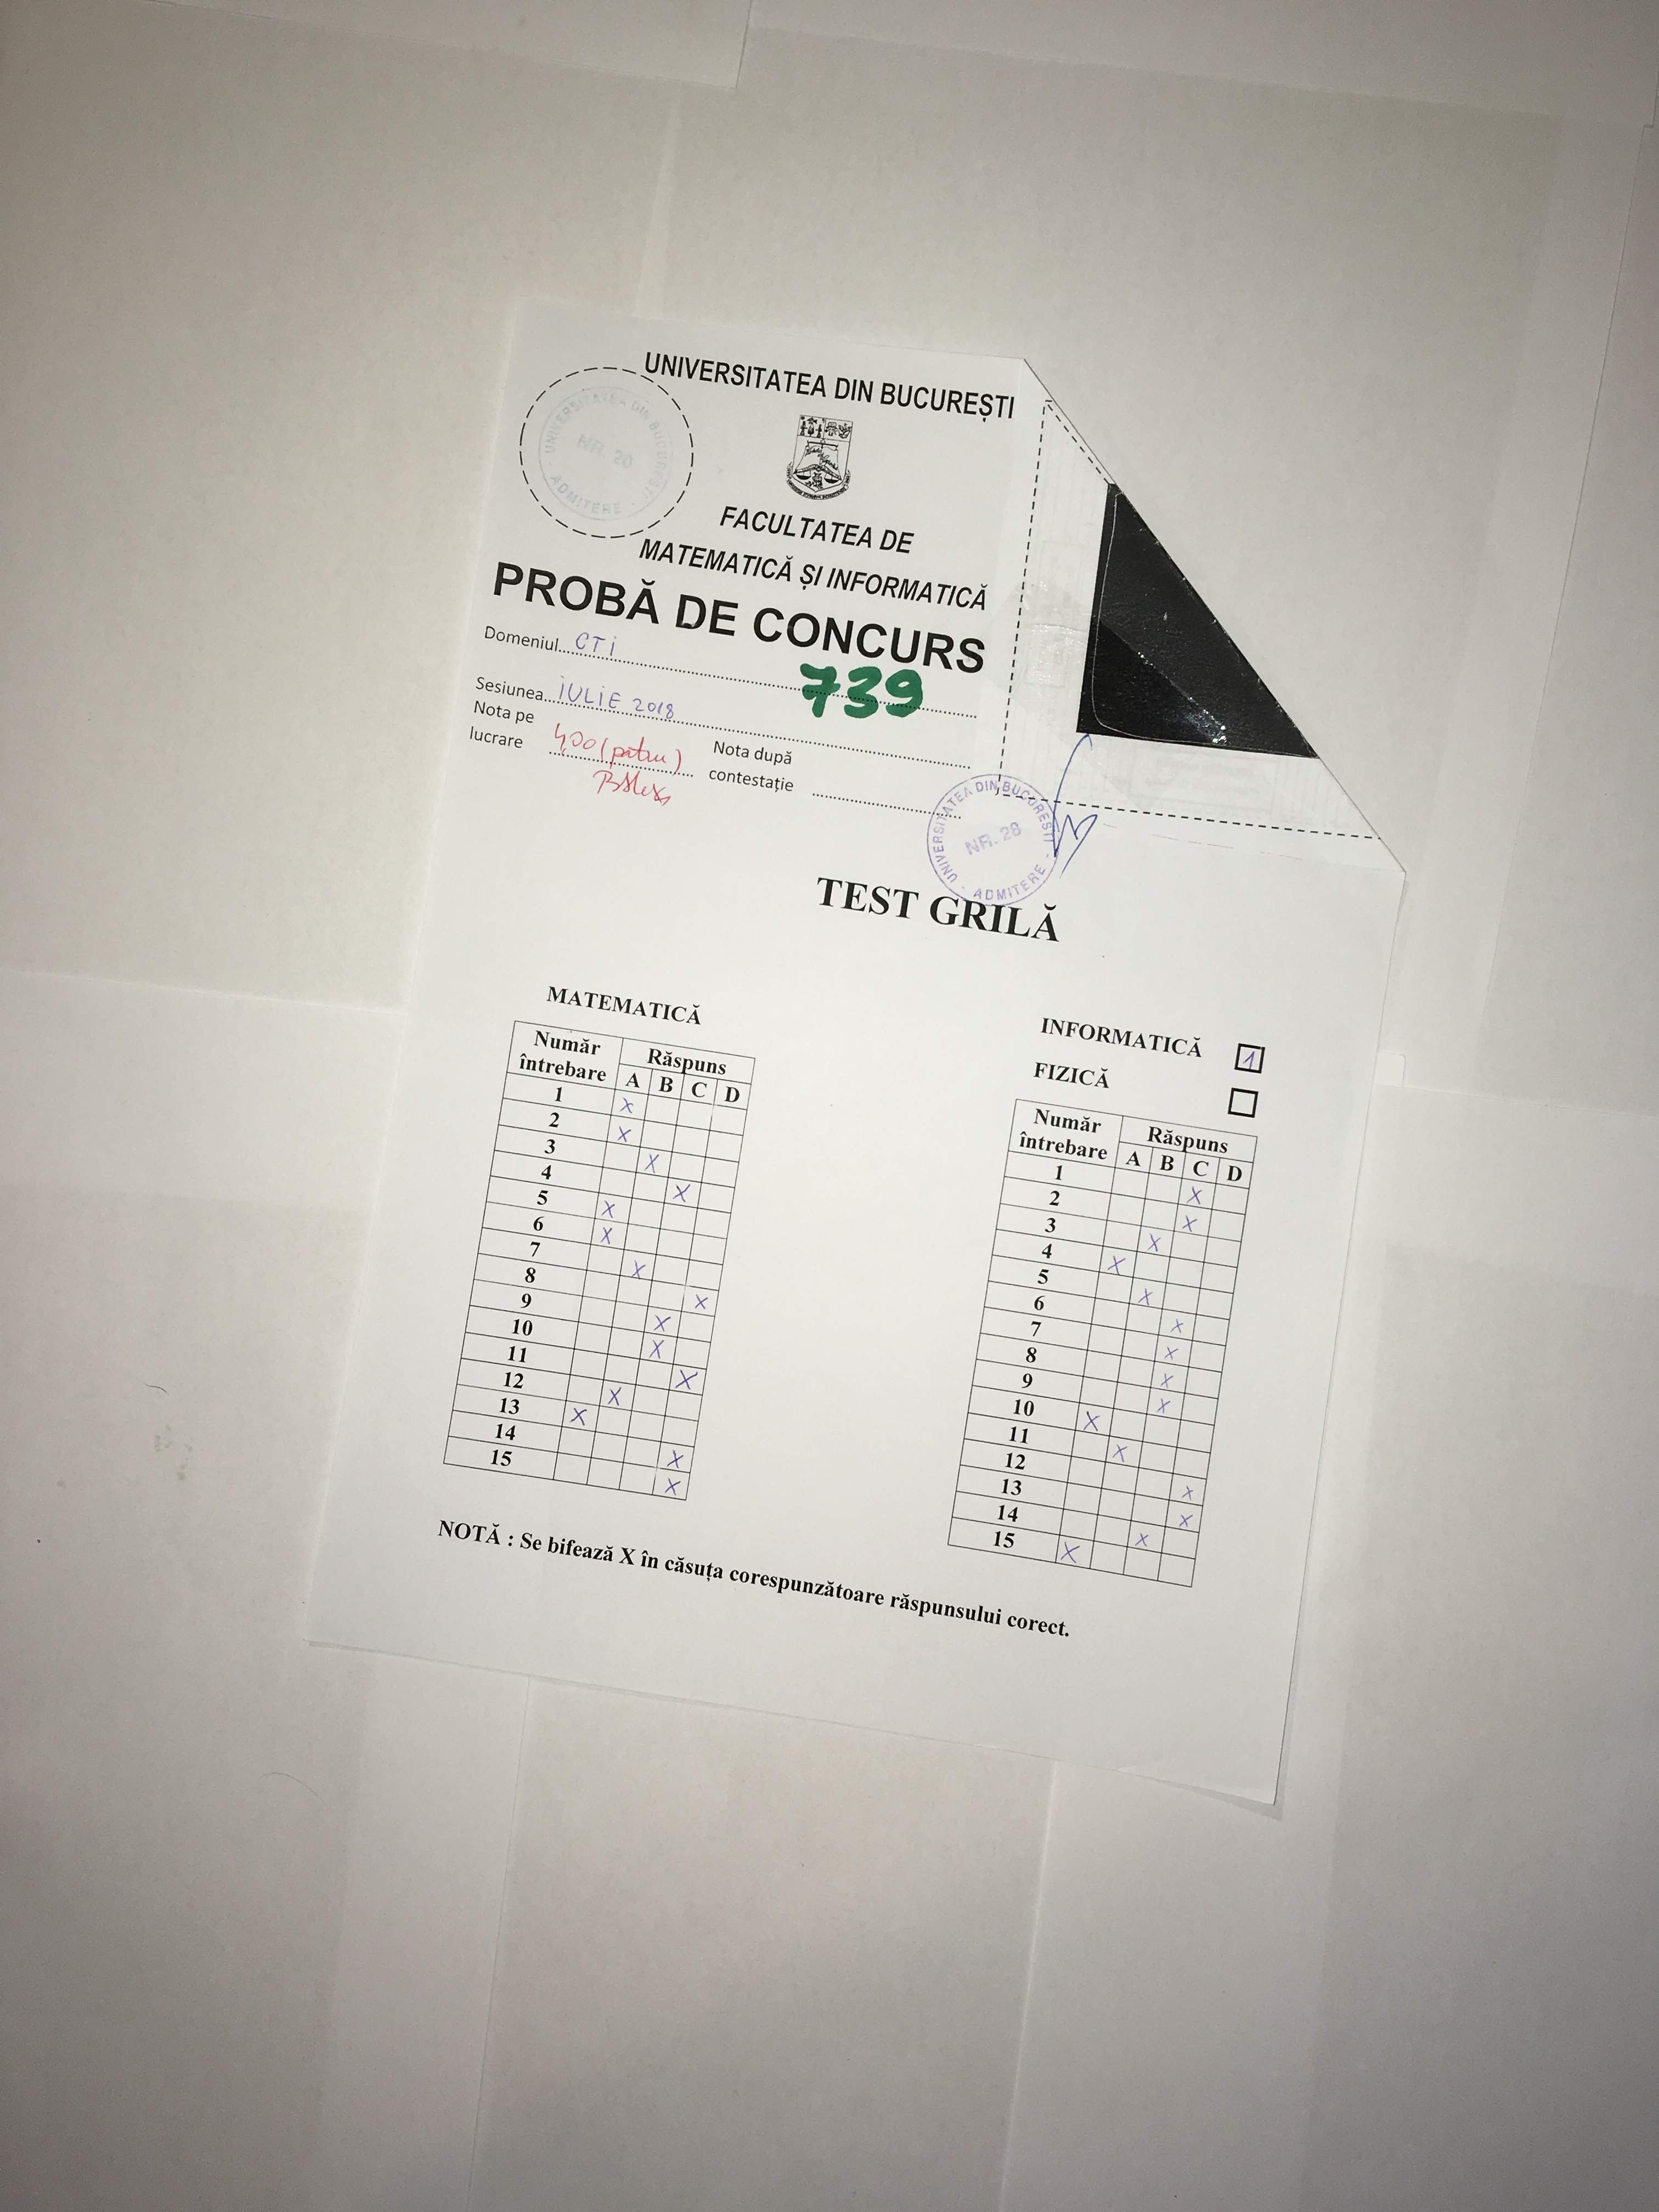 UNIVERSITATEA DIN BUCUREȘTI
UNIVERSITATEA DIN BUCUREȘTI
NR. 20
ADMITERE
FACULTATEA DE
MATEMATICĂ ȘI INFORMATICĂ
PROBĂ DE CONCURS
Domeniul... CTI
739
Sesiunea... IULIE 2018
Nota pe lucrare 4,00 (patru)
Nota după contestație
UNIVERSITATEA DIN BUCUREȘTI
NR. 28
ADMITERE
TEST GRILĂ
MATEMATICĂ
Număr întrebare Răspuns
A B C D
1 X
2 X
3 X
4 X
5 X
6 X
7 X
8 X
9 X
10 X
11 X
12 X
13 X
14 X
15 X
INFORMATICĂ 1
FIZICĂ
Număr întrebare Răspuns
A B C D
1 X
2 X
3 X
4 X
5 X
6 X
7 X
8 X
9 X
10 X
11 X
12 X
13 X
14 X
15 X
NOTĂ : Se bifează X în căsuța corespunzătoare răspunsului corect.